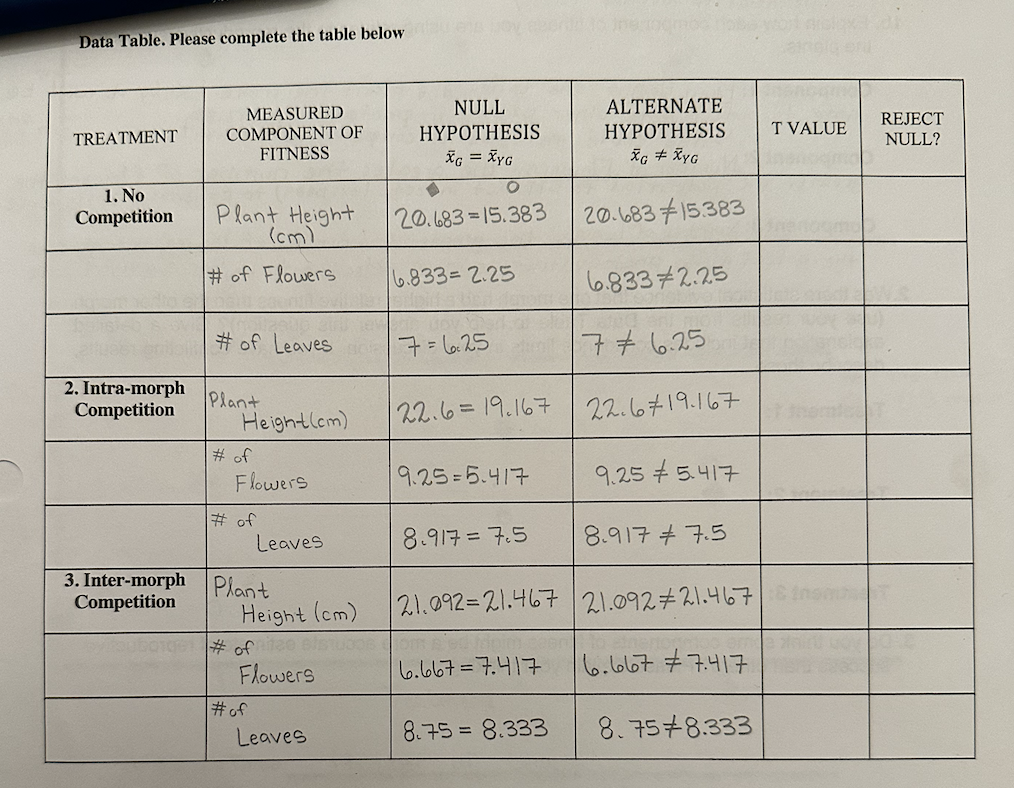 Data Table. Please complete the table below
TREATMENT
MEASURED
COMPONENT OF
FITNESS
NULL
HYPOTHESIS
x̄G = x̄YG
ALTERNATE
HYPOTHESIS
x̄G ≠ x̄YG
T VALUE
REJECT
NULL?
1. No
Competition
Plant Height
(cm)
20.683 = 15.383
20.683 ≠ 15.383
# of Flowers
6.833 = 2.25
6.833 ≠ 2.25
# of Leaves
7 = 6.25
7 ≠ 6.25
2. Intra-morph
Competition
Plant
Height (cm)
22.6 = 19.167
22.6 ≠ 19.167
# of
Flowers
9.25 = 5.417
9.25 ≠ 5.417
# of
Leaves
8.917 = 7.5
8.917 ≠ 7.5
3. Inter-morph
Competition
Plant
Height (cm)
21.092 = 21.467
21.092 ≠ 21.467
# of
Flowers
6.667 = 7.417
6.667 ≠ 7.417
# of
Leaves
8.75 = 8.333
8.75 ≠ 8.333